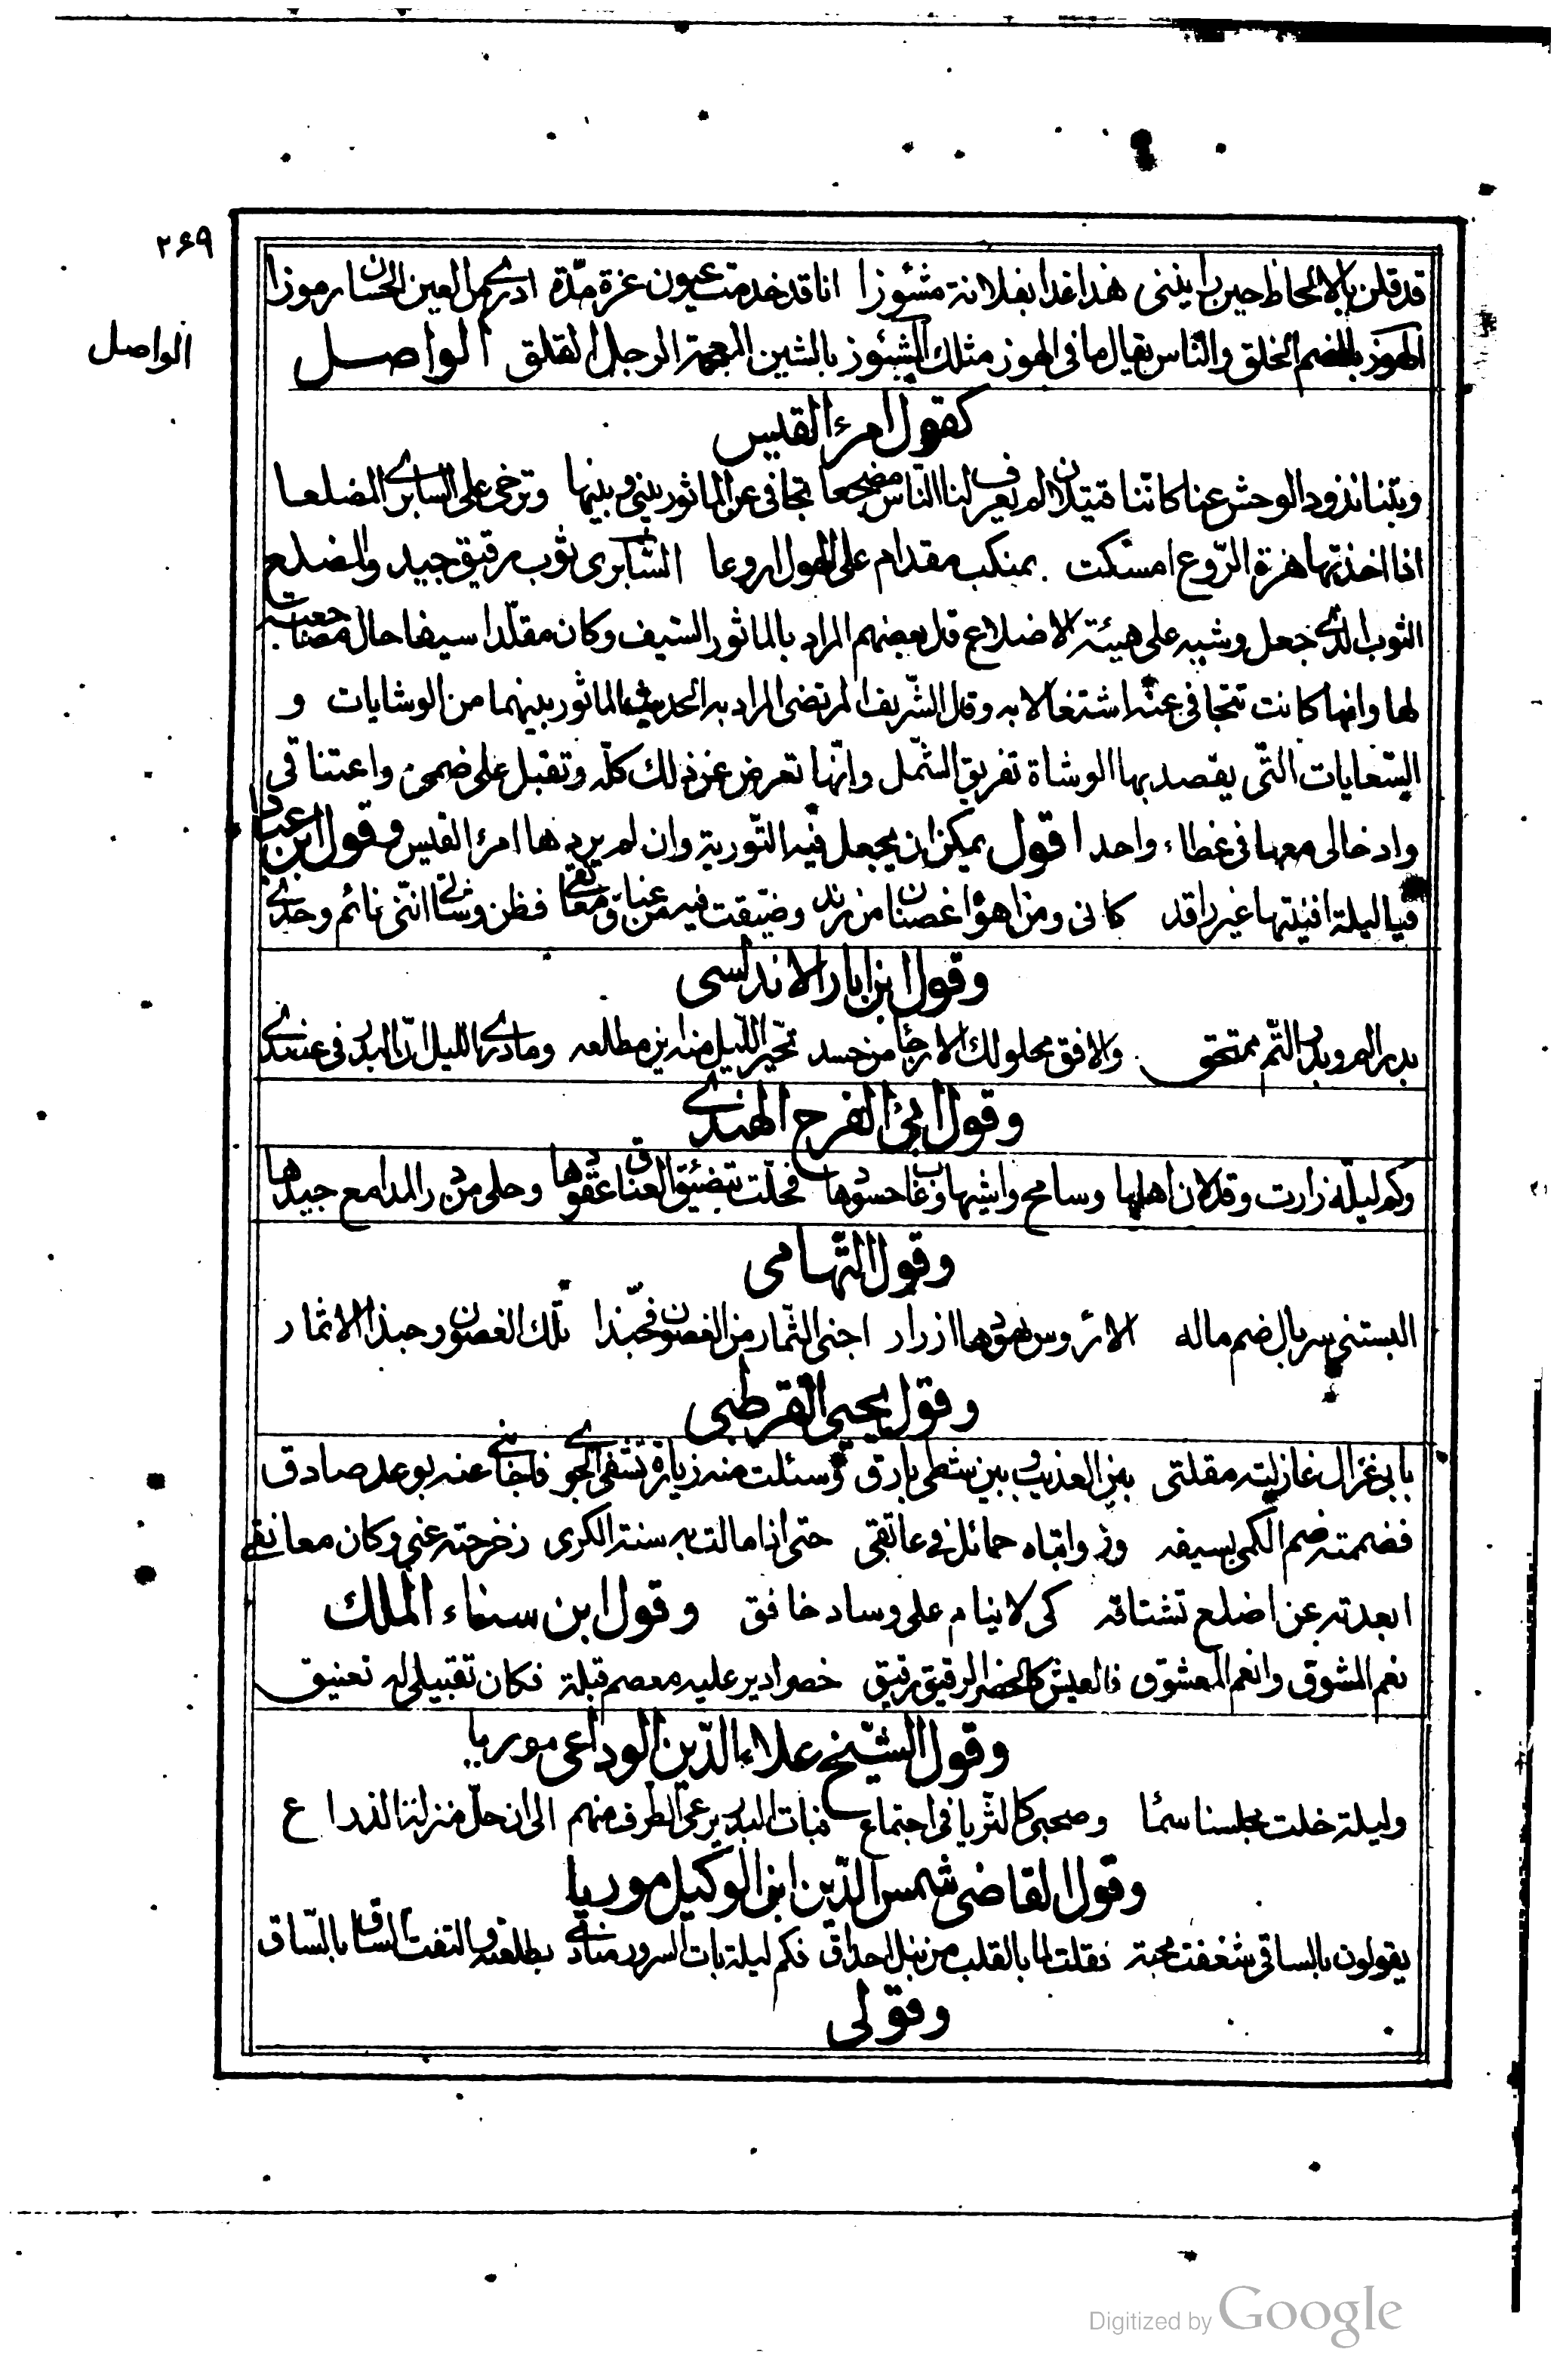 ٢٦٩
قد قلن بالالحاظ حين رأينني هذا غدا بفلانة مشئوزا انا قد خدمت عيون غزة مدّة ادرى من العين الحسان رموزا
الهوز بالضم الخلق والناس يقال ما فى الهوز مثلك الشئوز بالشين المعجمة الرجل القلق الواصل
الواصل
كقول امرء القيس
وبتنا نذود الوحش عنا كاننا قتيلان لم يعرف لنا الناس مضجعا تجافى عن الماثور بينى وبينها وترخى على السابرى المضلعا
اذا اخذتها هزة الرّوع امسكت بمنكب مقدام على الهول اروعا السابرى ثوب رقيق جيد والمضلع
الثوب الذى جعل وشيه على هيئة الاضلاع قال بعضهم المراد بالماثور السّيف وكان مقلّدا سيفا حال مضاجعته
لها وانها كانت تتجافى عنه اشتغالا به وقال الشّريف المرتضى المراد به الحديث الماثور بينهما من الوشايات و
السّعايات التّى يقصد بها الوشاة تفريق الشّمل وانّها تعرض عن ذلك كلّه وتقبل على ضمى واعتناقى
وادخالى معها فى غطاء واحد اقول يمكن ان يجعل فيه التّورية وان لم يردها امرؤ القيس وقول ابن عباد
فيا ليلة افنيتها غير راقد كانى ومن اهوا غصنان من رند وضيقت فيه من عناق معانقى فظن وشاتى اننى نائم وحدى
وقول ابن ابار الاندلسى
بدر الم وبدر التّم ممتحق والافق محلولك الارجاء من حسد تحيّر الليل منه اين مطلعه وما درى الليل انّ البدر فى عضدى
وقول ابى الفرج الهندى
وكم ليلة زارت وقد لان اهلها وسامح واشيها وغاب حسودها فحلّت بتضيّيق العناق عقودها وحلى من در المدامع جيدها
وقول التّهامى
البستنى سربال ضم ماله الا رؤوس نهودها ازرار اجنى الثّمار من الغصون فحبّذا تلك الغصون وحبذا الاثمار
وقول يحيى القرطبى
بابى غزال غازلته مقلتى بين العذيب وبين شطى بارق وسئلت منه زيارة تشفى الجوى فاجابنى عنه بوعد صادق
فضممته ضم الكمى بسيفه وذؤابتاه حمائل فى عاتقى حتى اذا مالت به سنة الكرى زحزحته عنى وكان معانقى
ابعدته عن اضلع تشتاقه كى لا ينام على وساد خافق وقول ابن سناء الملك
نعم المشوق وانعم المعشوق فالعيش كالخصر الرقيق رقيق خصر ادير عليه معصم قبلة فكان تقبيلى له تعنيق
وقول الشّيخ علاء الدّين الوداعى موريا
وليلة خلت مجلسنا سمًا وصحبى كالثّريا فى اجتماع فبات البدر يرعى الطرف منهم الى ان حلّ منزلنا الذراع
وقول القاضى شمس الدّين ابن الوكيل موريا
يقولون بالساقى شغفت محبة فقلت لما بالقلب من نبل احداق فكم ليلة بات السرور منادمى بطلعته والتفت الساق بالسّاق
وقولى
Digitized by Google